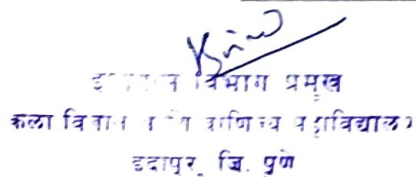 विभाग प्रमुख
कला विज्ञान वाणिज्य महाविद्यालय
इंदापूर, जि. पुणे